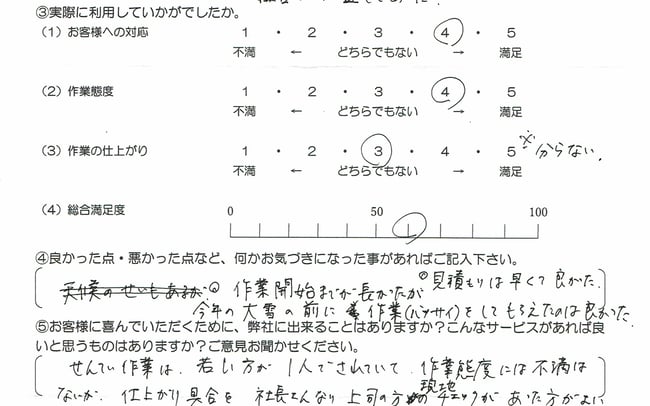 ③実際に利用していかがでしたか。
(1) お客様への対応 1 ・ 2 ・ 3 ・ 4 ・ 5
不満 ← どちらでもない → 満足
(2) 作業態度 1 ・ 2 ・ 3 ・ 4 ・ 5
不満 ← どちらでもない → 満足
(3) 作業の仕上がり 1 ・ 2 ・ 3 ・ 4 ・ 5 ※分らない。
不満 ← どちらでもない → 満足
(4) 総合満足度 0 50 100
④良かった点・悪かった点など、何かお気づきになった事があればご記入下さい。
◎見積もりは早くて良かった。
天候のせいもあるが 作業開始までが長かったが
今年の大雪の前に 作業(バッサイ)をしてもらえたのは良かった
⑤お客様に喜んでいただくために、弊社に出来ることはありますか?こんなサービスがあれば良
いと思うものはありますか?ご意見お聞かせください。
せんてい作業は、若い方が1人でされていて、作業態度には不満は
ないが、仕上がり具合を 社長さんなり上司の方の現地チェックがあった方がよい